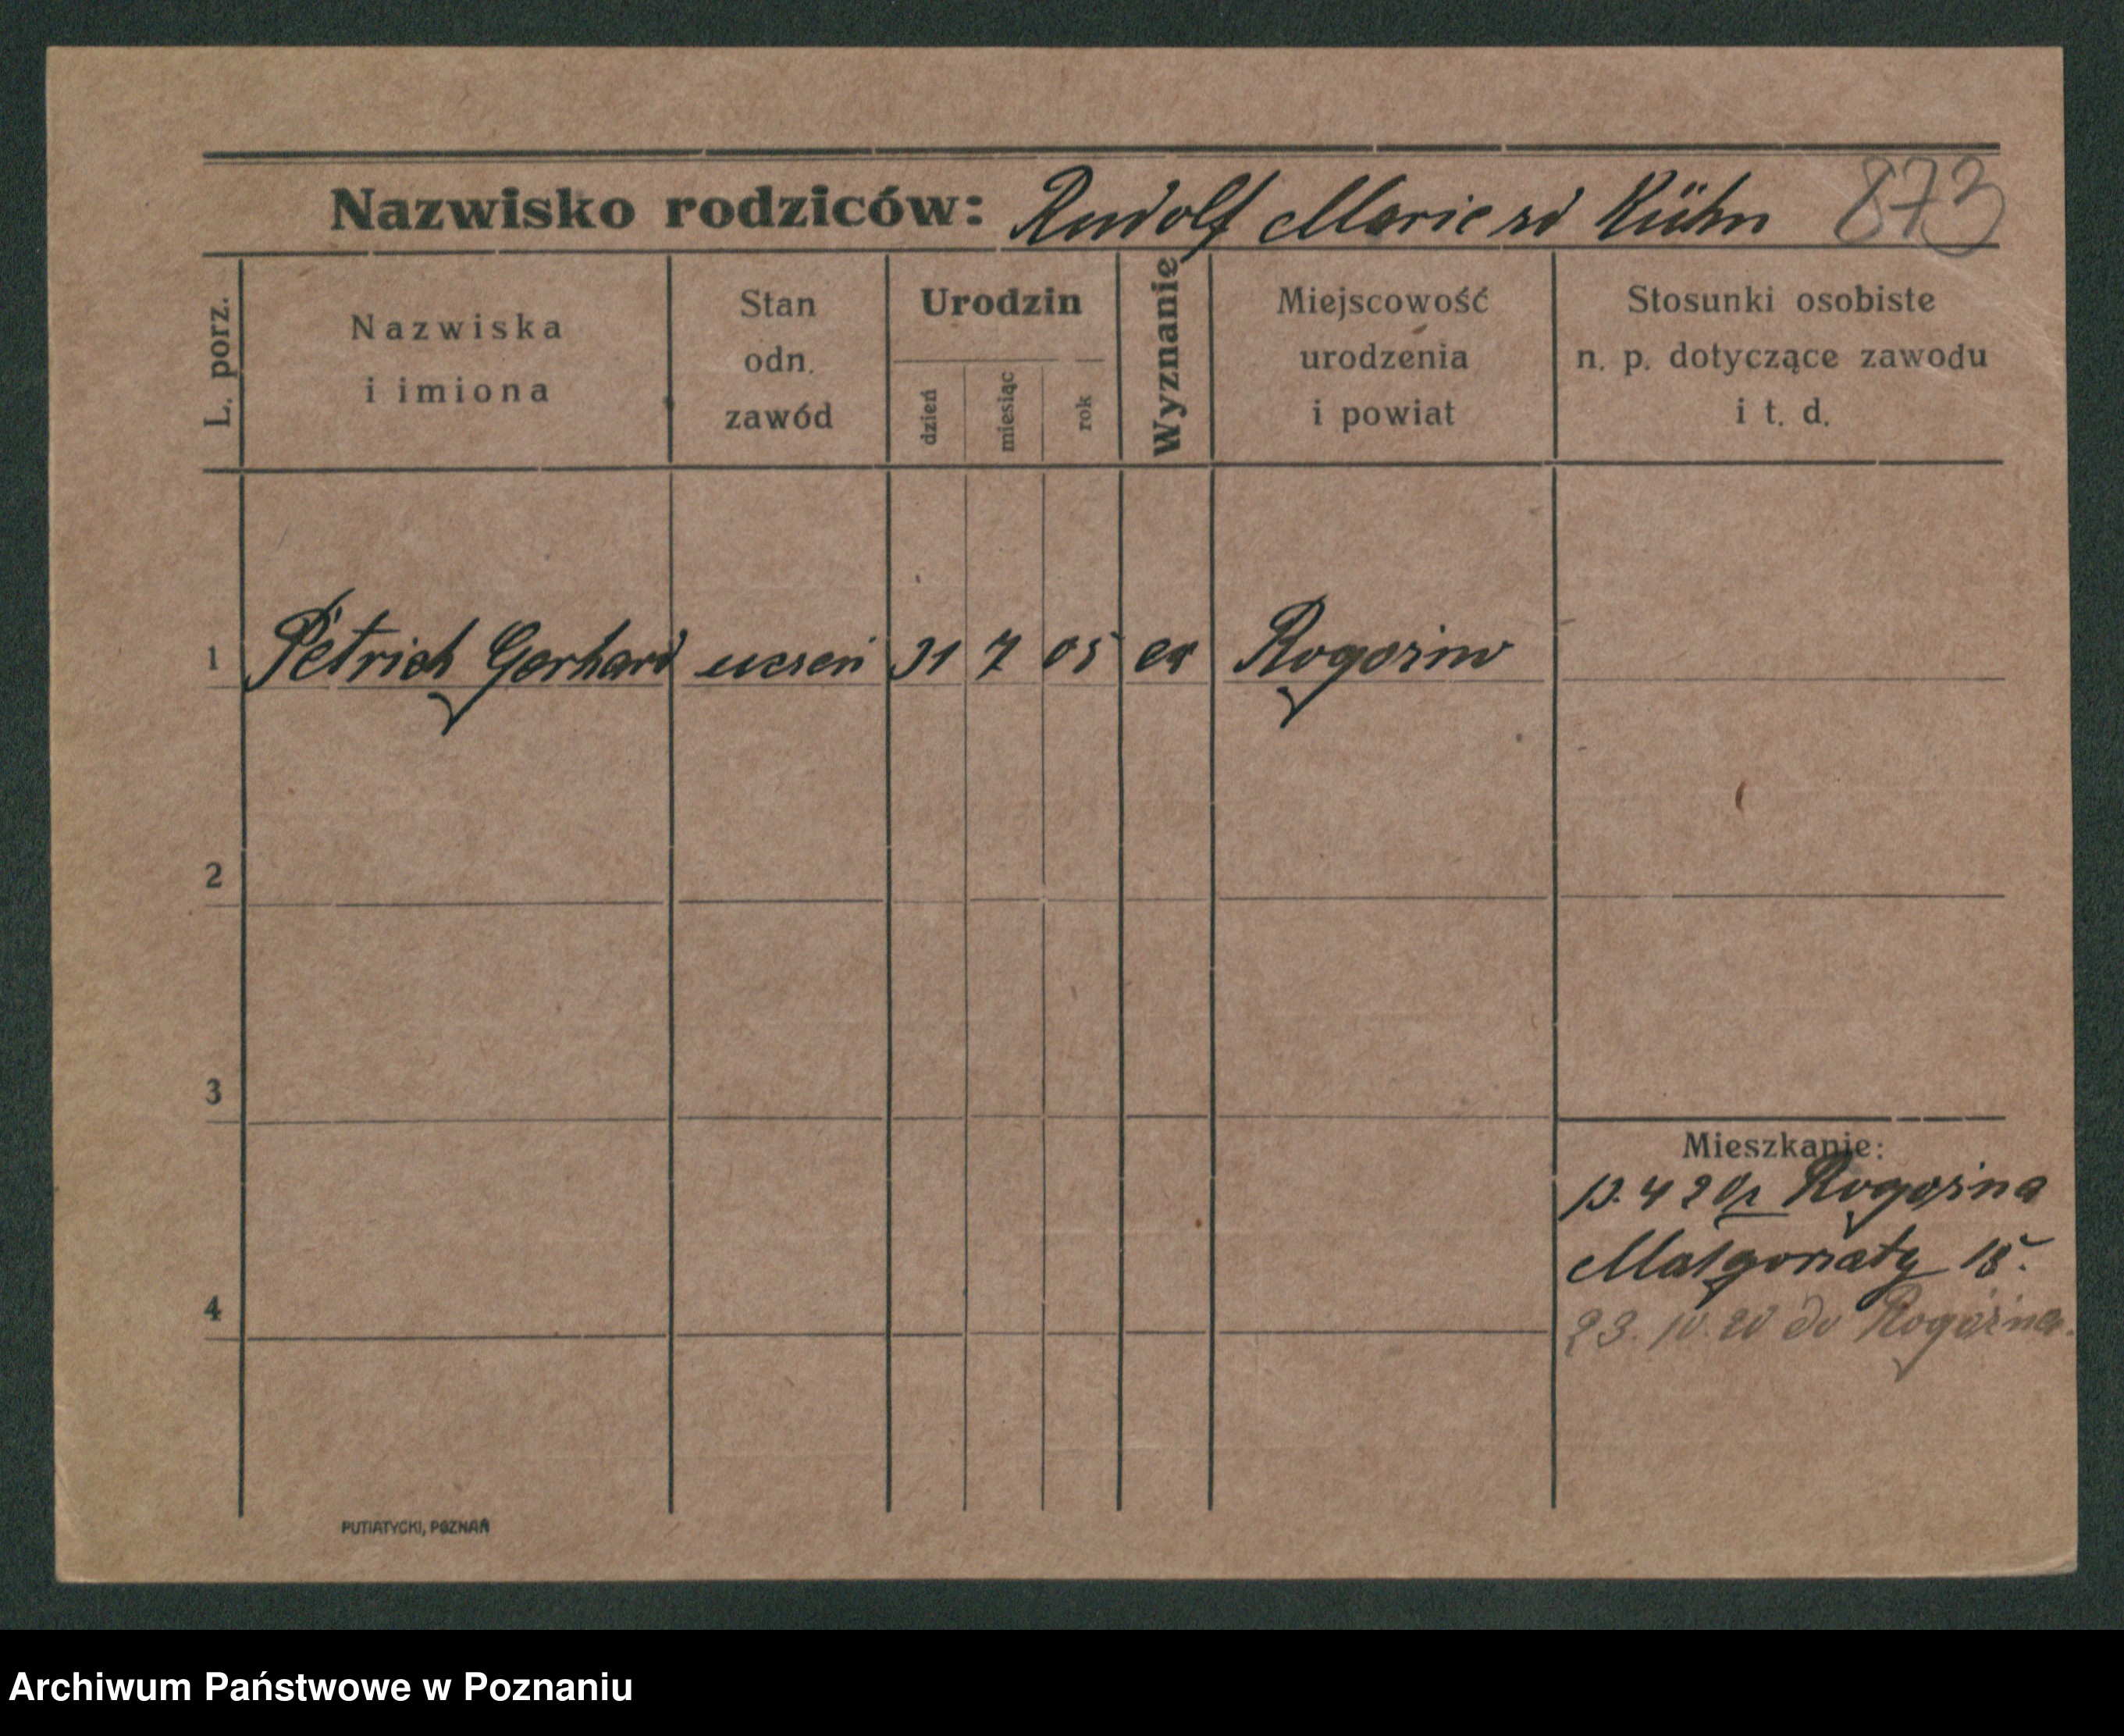 Nazwisko rodziców: Rudolf Marie rd Kühn 873
L. porz.
Nazwiska
i imiona
Stan
odn.
zawód
Urodzin
dzień
miesiąc
rok
Wyznanie
Miejscowość
urodzenia
i powiat
Stosunki osobiste
n. p. dotyczące zawodu
i t. d.
1 Petrich Gerhard uczeń 31 7 05 ew Rogoźno
2
3
Mieszkanie:
13. 4 20 z Rogoźna
Małgorzaty 15.
4
23. 10. 20 do Rogoźna.
PUTIATYCKI, POZNAŃ
Archiwum Państwowe w Poznaniu